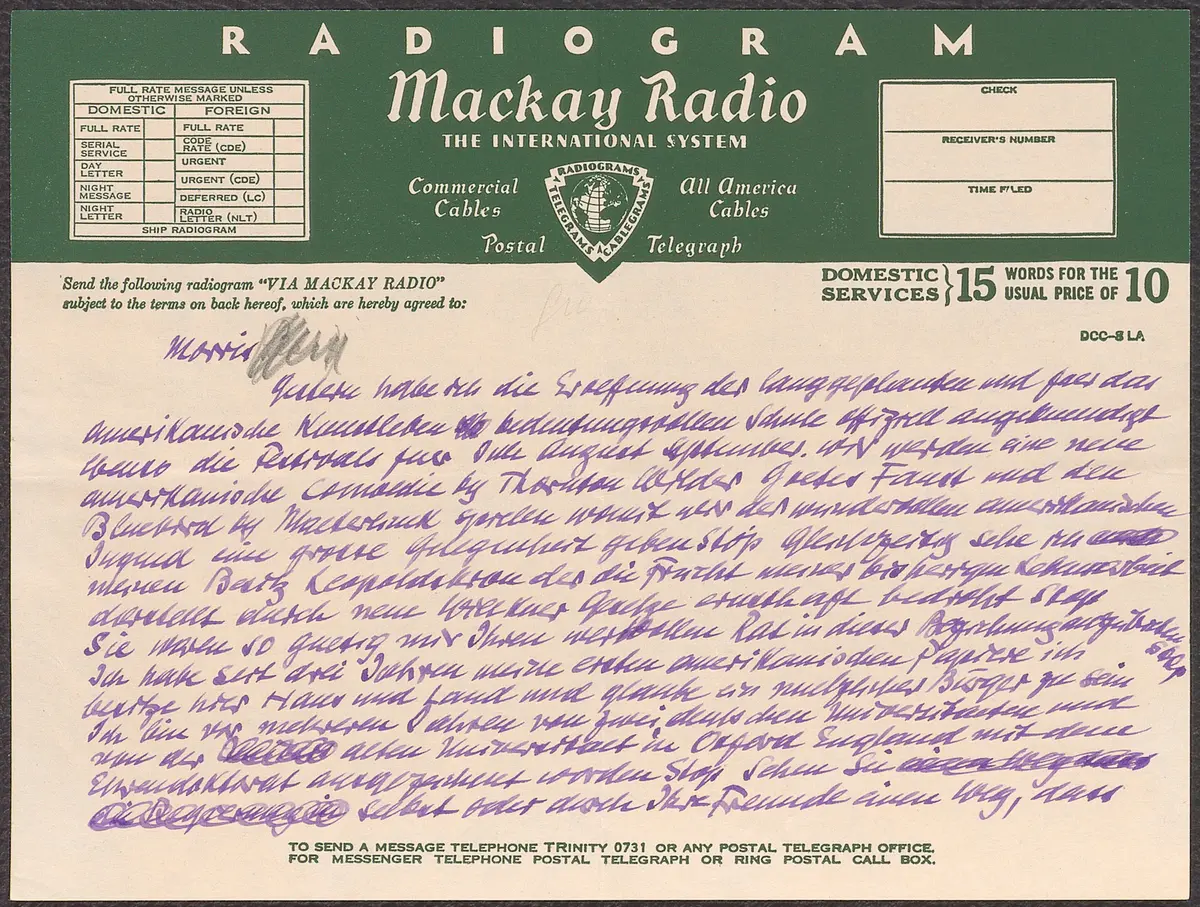 RADIOGRAM
Mackay Radio
THE INTERNATIONAL SYSTEM
Commercial Cables
All America Cables
Postal Telegraph
RADIOGRAMS TELEGRAMS CABLEGRAMS
FULL RATE MESSAGE UNLESS
OTHERWISE MARKED
DOMESTIC FOREIGN
FULL RATE FULL RATE
SERIAL SERVICE CODE RATE (CDE)
DAY LETTER URGENT
NIGHT MESSAGE URGENT (CDE)
DEFERRED (LC)
NIGHT LETTER RADIO LETTER (NLT)
SHIP RADIOGRAM
CHECK
RECEIVER'S NUMBER
TIME FILED
Send the following radiogram "VIA MACKAY RADIO"
subject to the terms on back hereof, which are hereby agreed to:
DOMESTIC SERVICES } 15 WORDS FOR THE USUAL PRICE OF 10
DCC-8 LA
Morris
Gestern habe ich die Eroeffnung der langgeplanten und fuer das
amerikanische Kunstleben bedeutungsvollen Schule offiziell angekuendigt
ebenso die Festivals fuer Juli August September. wir werden eine neue
amerikanische Comoedie by Thornton Wilder Goetes Faust und den
Bluebird by Maeterlinck spielen womit wir der wundervollen amerikanischen
Jugend eine grosse Gelegenheit geben Stop Gleichzeitig sehe ich
meinen Besitz Leopoldskron der die Frucht meiner bisherigen Lebensarbeit
darstellt durch neue Gesetze ernsthaft bedroht Stop
Sie waren so guetig mir Ihren wertvollen Rat in dieser Beziehung anzubieten Stop
Ich habe seit drei Jahren meine ersten amerikanischen Papiere ich
besitze hier Haus und Land und glaube ein nuetzlicher Bürger zu sein
Ich bin vor mehreren Jahren von zwei deutschen Universitaeten und
von der alten Universitaet in Oxford England mit dem
Ehrendoktorat ausgezeichnet worden Stop Sehen Sie
selbst oder durch Ihre Freunde einen Weg, dass
TO SEND A MESSAGE TELEPHONE TRINITY 0731 OR ANY POSTAL TELEGRAPH OFFICE.
FOR MESSENGER TELEPHONE POSTAL TELEGRAPH OR RING POSTAL CALL BOX.